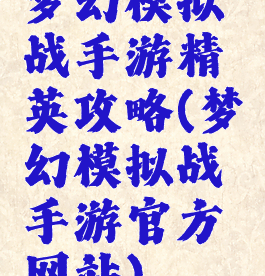 梦幻模拟
战手游精
英攻略(梦
幻模拟战
手游官方
网站)